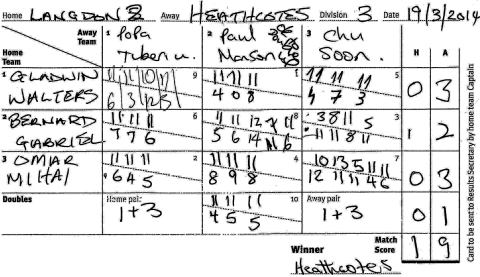 Home LANGDON 2 Away HEATHCOTES Division 3 Date 19/3/2014
Away Team 1 Pola 2 Paul 3 Chu H A
Home Team Manson Soon.
1 GLADWIN 11 11 10 11 9 11 11 11 1 11 11 11 5 0 3
WALTERS 6 3 12 5 4 0 8 4 7 3
2 BERNARD 11 11 11 6 8 3 8 11 5 3 1 2
GABRIEL 7 7 6 11 11 8 11
3 OMAR 11 11 11 2 11 11 11 4 10 13 5 11 11 7 0 3
MIHAI 6 4 5 8 9 8 12 11 11 4 6
Doubles Home pair 11 11 11 10 Away pair 0 1
1+3 4 5 5 1+3
Winner Match Score 1 9
Heathcotes
Card to be sent to Results Secretary by home team Captain